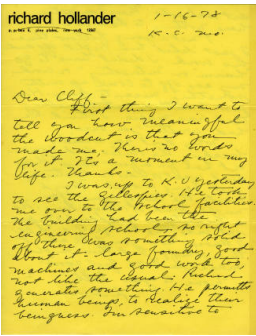 richard hollander
1-16-78
K.C. Mo.
Dear Cliff-
First thing I want to
tell you how meaningful
the woodcut is that you
made me. There's no words
for it. It's a moment in my
life. Thanks.
I was up to K.U yesterday
to see the Gilleslies. He took
me over to the school facilities.
The building had been the
engineering school, so right
off there was something solid
about it. large foundry, good
machines and good wood too,
not like the usual. Richard
generates something. He permits
human beings, to realize their
beingness. I'm sensitive to